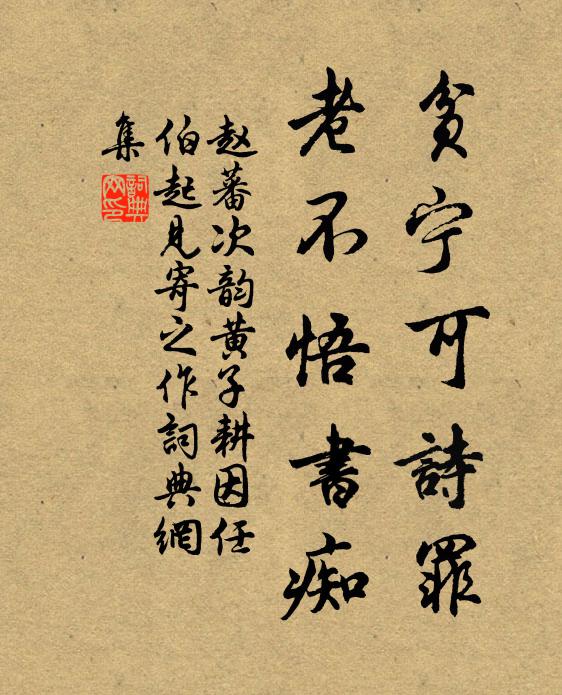 貧宁可詩罪
老不悟書痴
赵蕃次韵黄子耕因任
伯起見寄之作詞典網
集
詞典網印